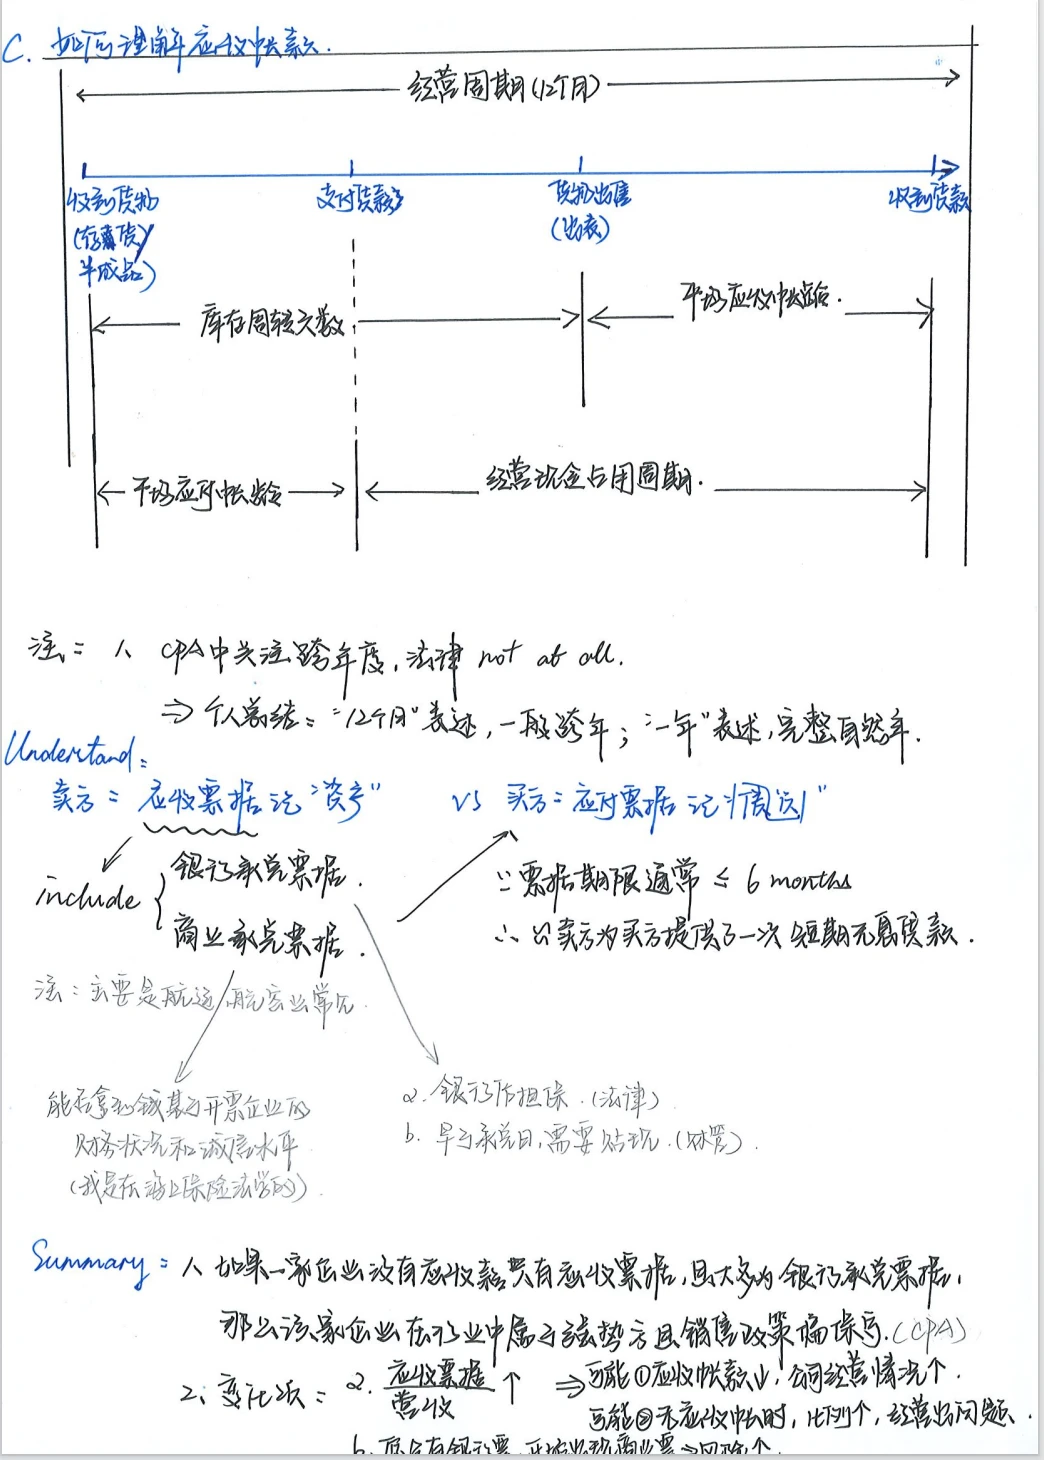 C. 如何理解应收帐款.
经营周期(12个月)
收到货物
(存货/
半成品)
支付货款
货物出售
(出表)
收到货款
库存周转天数
平均应收帐龄.
平均应付帐龄
经营现金占用周期.
注: 1、CPA中关注跨年度,法律 not at all.
⇒ 个人总结: "12个月"表述,一般跨年; "一年"表述,完整自然年.
Understand:
卖方: 应收票据记"资产" VS 买方: 应付票据记
include { 银行承兑票据.
商业承兑票据.
∵ 票据期限通常 ≤ 6 months
∴ 卖方为买方提供了一次短期无息贷款.
注: 主要是航运/航空业常见.
能否拿到钱基于开票企业的
财务状况和诚信水平
(我是在海上保险法学的).
a. 银行作担保.(法律)
b. 早于承兑日,需要贴现.(财管).
Summary: 1、如果一家企业没有应收款只有应收票据,且大多为银行承兑票据,
那么该家企业在行业中属于强势方且销售政策偏保守.(CPA)
2、变化项: a. 应收票据/营收 ↑ ⇒ 可能①应收帐款↓,公司经营情况↑.
可能②无应收帐时,比例↑,经营出问题.
b. 原只有银行票,开始出现商业票⇒风险↑.